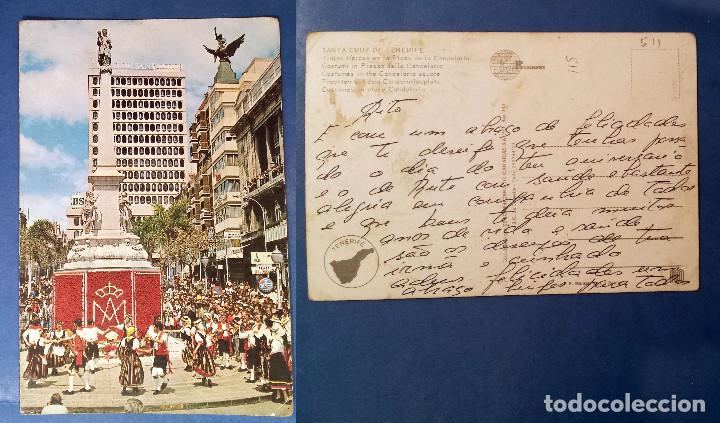 SANTA CRUZ DE TENERIFE
Trajes típicos en la Plaza de la Candelaria
Costumi in Piazza della Candelaria
Costumes in the Candelaria square
Trachten auf dem Candelariaplatz
Costumes en place Candelaria
511
115
E com um abraço de felicidades
que te desejo que tenhas
do o dia do teu aniversario
e o do com saúde e bastante
alegria em companhia de todos
e que Deus te dêia muitos
anos de vida e saúde
são os desejos de tua
irmã e cunhado
adeus felicidades um
abraço para todos
TENERIFE
todocoleccion.net